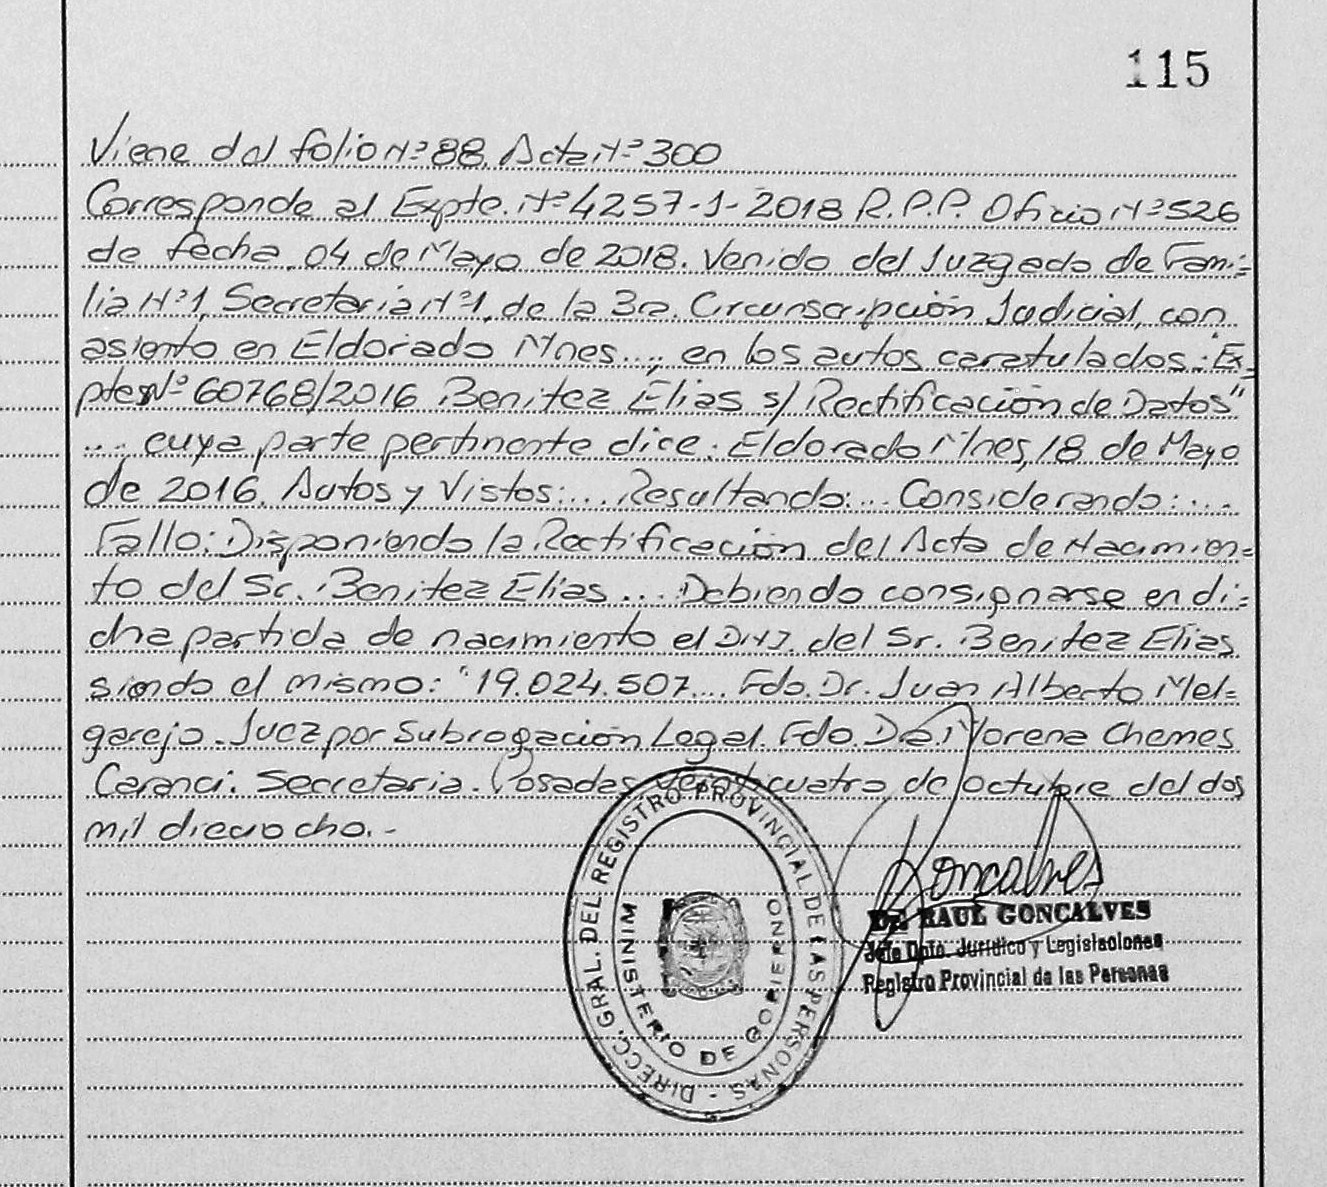 115
Viene del folio Nº 88. Acta Nº 300
Corresponde al Expte. Nº 4257-1-2018 R.P.P. Oficio Nº 526
de fecha 04 de Mayo de 2018. Venido del Juzgado de Fami=
lia Nº 1, Secretaria Nº 1, de la 3ra. Circunscripción Judicial, con
asiento en Eldorado Mnes..., en los autos caratulados: "Ex=
pte Nº 60768/2016 Benitez Elias s/ Rectificación de Datos"
... cuya parte pertinente dice: Eldorado Mnes, 18 de Mayo
de 2016. Autos y Vistos:... Resultando:... Considerando:...
Fallo: Disponiendo la Rectificación del Acta de Nacimien=
to del Sr. Benitez Elias... Debiendo consignarse en di=
cha partida de nacimiento el DNI. del Sr. Benitez Elias
siendo el mismo: "19.024.507... Fdo. Dr. Juan Alberto Mel=
garejo. Juez por Subrogación Legal. Fdo. Dra. Morena Chemes
Caranci. Secretaria. Posadas, Veinticuatro de octubre del dos
mil dieciocho.-
DIRECC. GRAL. DEL REGISTRO PROVINCIAL DE LAS PERSONAS -
MINISTERIO DE GOBIERNO
Goncalves
Dr. RAUL GONCALVES
Jefe Dpto. Jurídico y Legislaciones
Registro Provincial de las Personas